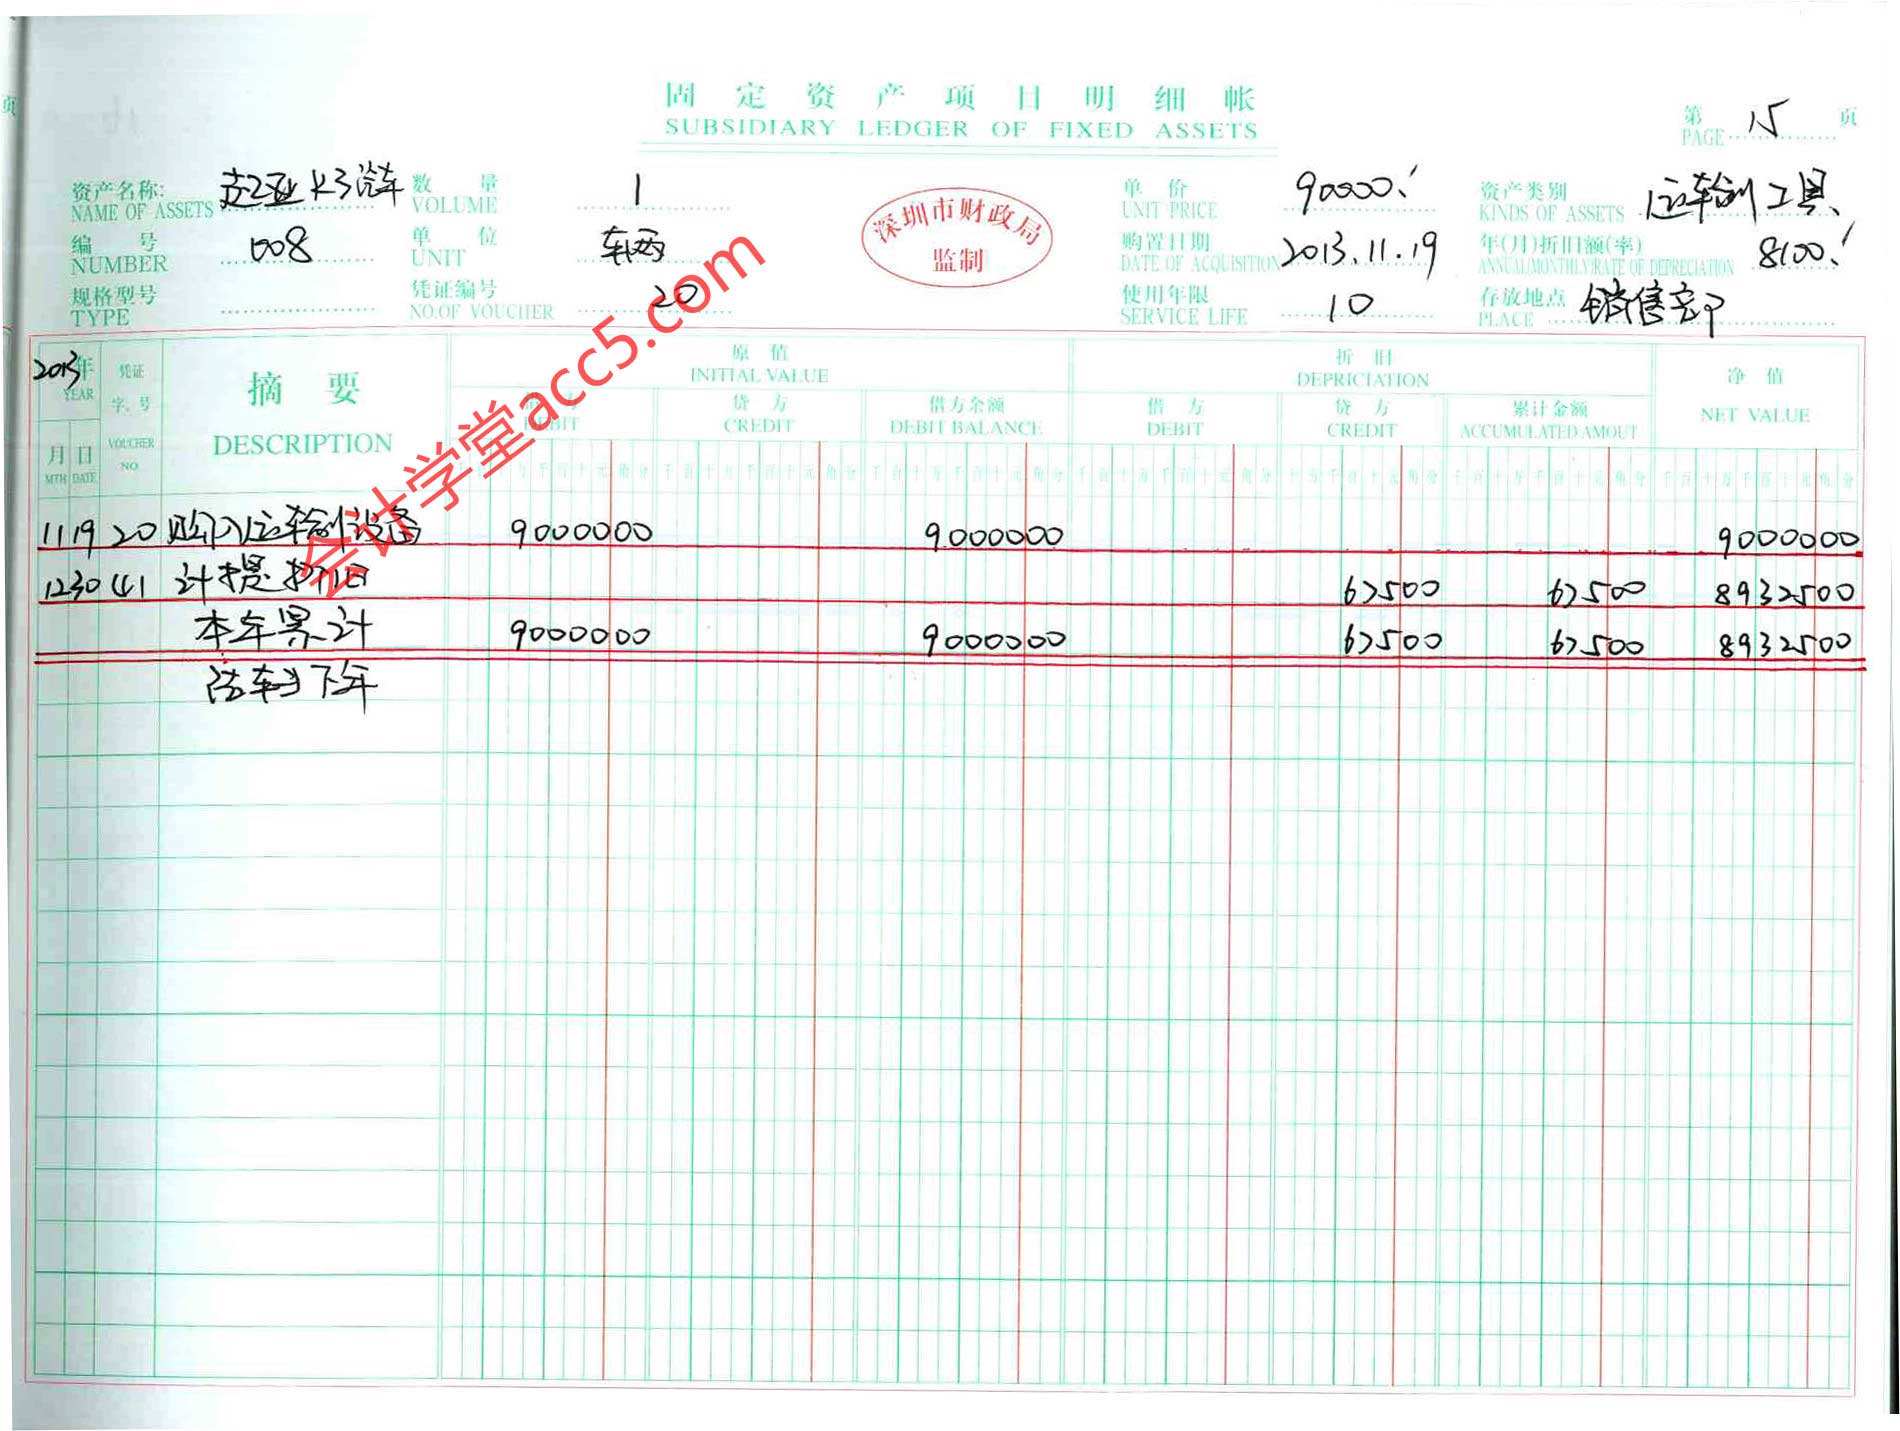 页
固定资产项目明细帐
SUBSIDIARY LEDGER OF FIXED ASSETS
第 15 页
PAGE
资产名称: 起亚K3汽车 数量 1 单价 90000.- 资产类别 运输工具
NAME OF ASSETS VOLUME UNIT PRICE KINDS OF ASSETS
编号 008 单位 车辆 购置日期 2013.11.19 年(月)折旧额(率) 8100.-
NUMBER UNIT DATE OF ACQUISITION ANNUAL/MONTHLY/RATE OF DEPRECIATION
规格型号 凭证编号 20 使用年限 10 存放地点 销售部
TYPE NO.OF VOUCHER SERVICE LIFE PLACE
深圳市财政局
监制
会计学堂acc5.com
2013年 凭证 摘要 原值 折旧 净值
YEAR 字、号 DESCRIPTION INITIAL VALUE DEPRICIATION NET VALUE
月 日 VOUCHER 借方 贷方 借方余额 借方 贷方 累计金额
MTH DATE NO DEBIT CREDIT DEBIT BALANCE DEBIT CREDIT ACCUMULATED AMOUT
千百十万千百十元角分
11 19 20 购入运输设备 9000000 9000000 9000000
12 30 41 计提折旧 67500 67500 8932500
本年累计 9000000 9000000 67500 67500 8932500
结转下年